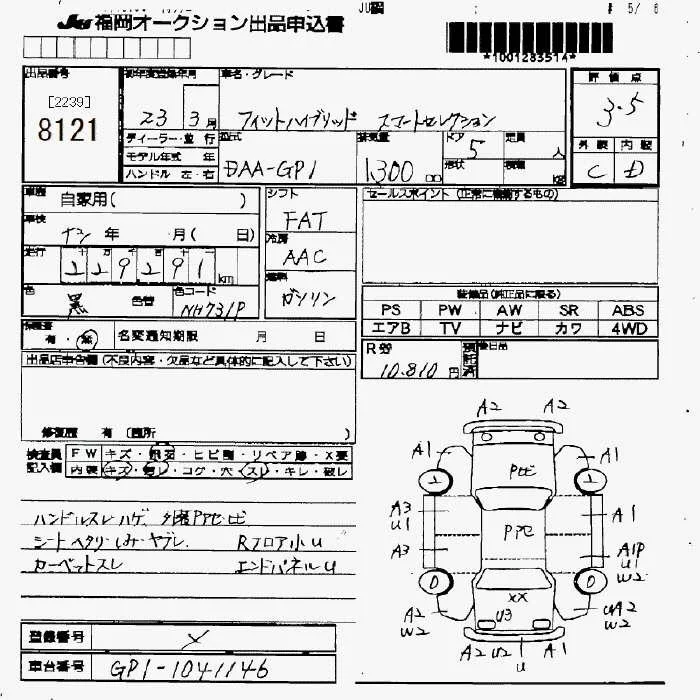 JU
# 5/ 6
JU 福岡オークション出品申込書
*1001283514*
出品番号
初年度登録年月
車名・グレード
評価点
[2239]
8121
23
3月
フィットハイブリッド スマートセレクション
3.5
ディーラー・並行
型式
排気量
ドア
定員
外装
内装
モデル年式 年
ハンドル 左・右
DAA-GP1
1300
cc
5
形状
人
積載
kg
C
D
車歴
自家用( )
シフト
FAT
セールスポイント (正常に機能するもの)
車検
年 月( 日)
冷房
AAC
走行
十万千百十一
229291 km
燃料
ガソリン
色
黒
色替
色コード
NH731P
装備品(純正品に限る)
PS PW AW SR ABS
エアB TV ナビ カワ 4WD
保証書
有・無
名変通知期限 月 日
R券
預託済
10.810円
後日品
出品店申告欄(不良内容・欠品など具体的に記入して下さい)
修復歴 有 〔箇所 )
検査員
記入欄
FW キズ・飛石・ヒビ割・リペア跡・X要
内装 キズ・汚レ・コゲ・穴・スレ・キレ・破レ
ハンドルスレハゲ、外装Pアセヒビ
シートヘタリ・しみ・ヤブレ、 Rフロア小U
カーペットスレ エンドパネルU
A2 A2
A1 A1
Pヒビ
A3
U1
A1
Pアセ
A3
A1P
U1
W2
D D
XX
U3
A2
W2
UA2
W2
A2 U2 A1
U
登録番号 X
車台番号 GP1-1041146